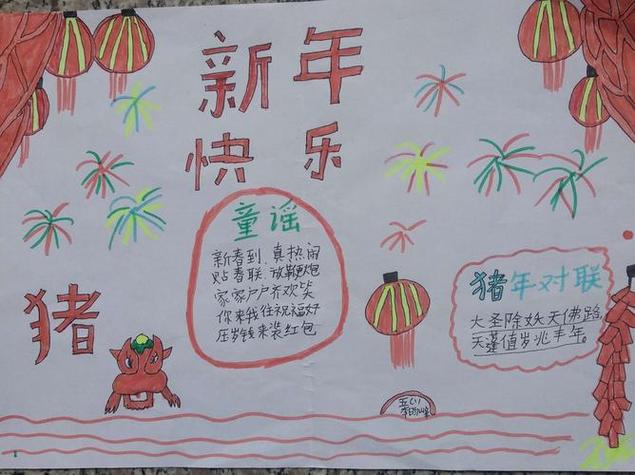 新年
快乐
童谣
新春到，真热闹
贴春联 放鞭炮
家家户户齐欢笑
你来我往祝福好
压岁钱来装红包
猪
猪年对联
大圣除妖天佛路，
天蓬值岁兆丰年。
五(1)